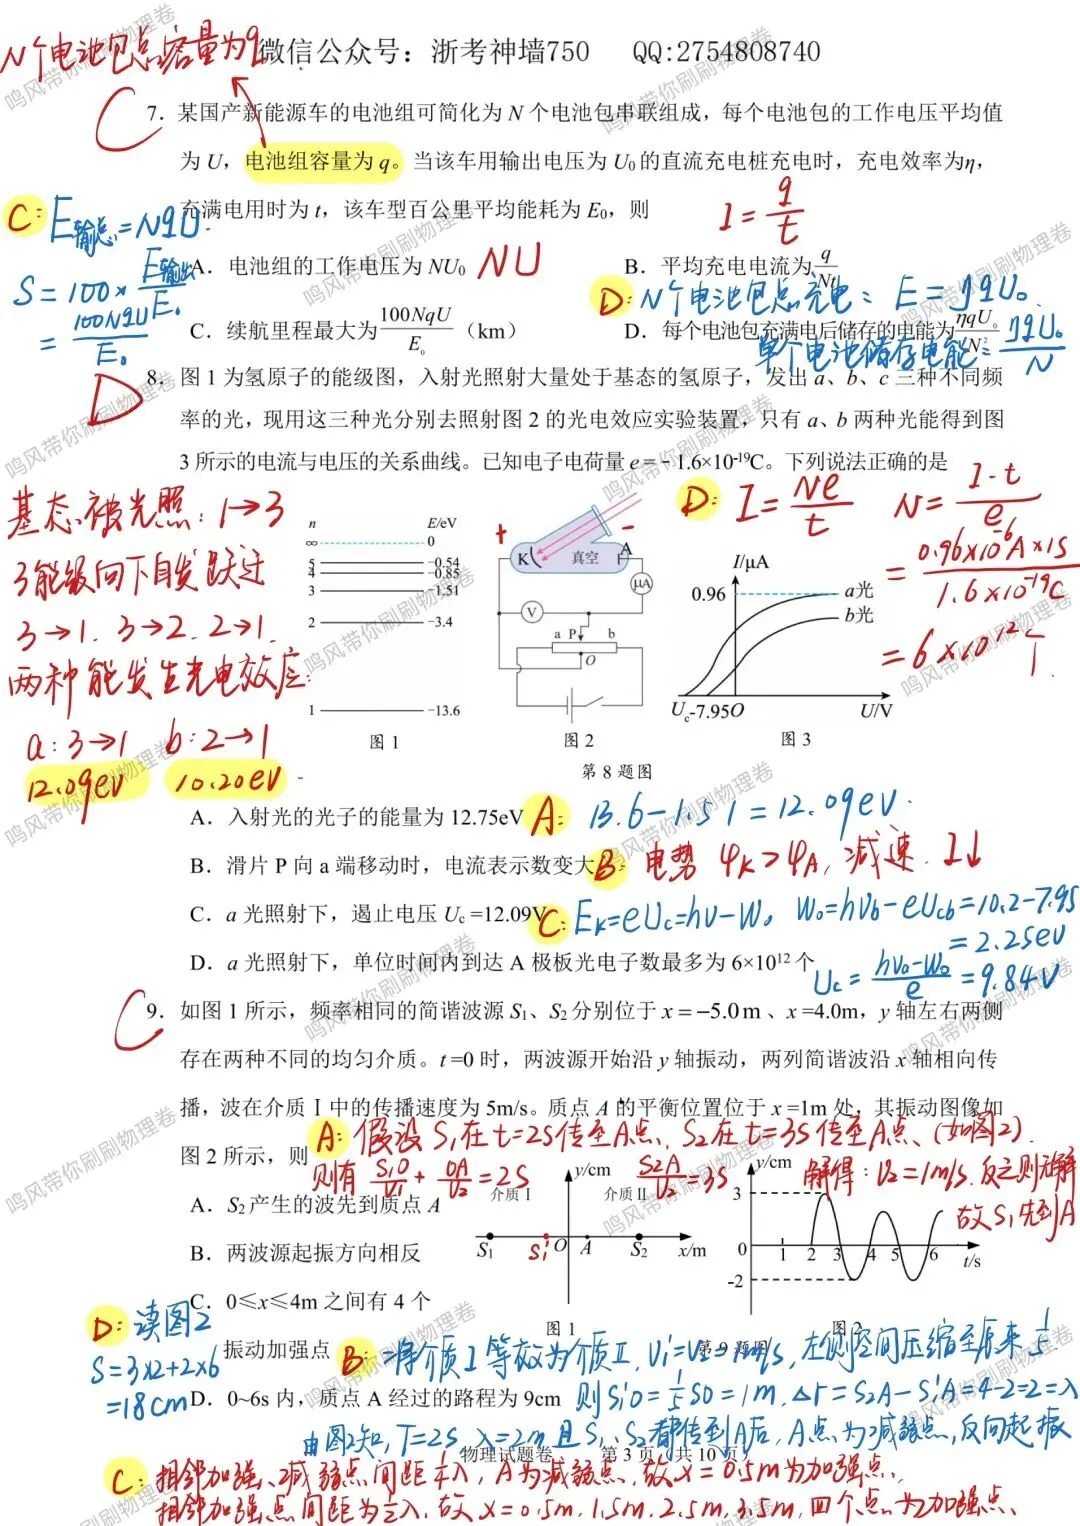 N个电池包总容量为q
微信公众号：浙考神墙750 QQ:2754808740
C
7. 某国产新能源车的电池组可简化为 N 个电池包串联组成，每个电池包的工作电压平均值
为 U，电池组容量为 q。当该车用输出电压为 U₀的直流充电桩充电时，充电效率为η，
充满电用时为 t，该车型百公里平均能耗为 E₀，则
I = q/t
C: E输总 = NqU
S = 100 × E输出/E₀
= 100NqU/E₀
A. 电池组的工作电压为 NU₀ NU
B. 平均充电电流为 q/Nt
D: N个电池包总充电: E = ηqU₀
C. 续航里程最大为 100NqU/E₀ （km）
D. 每个电池包充满电后储存的电能为 ηqU₀/N²
单个电池储存电能: ηqU₀/N
D
8. 图 1 为氢原子的能级图，入射光照射大量处于基态的氢原子，发出 a、b、c 三种不同频
率的光，现用这三种光分别去照射图 2 的光电效应实验装置，只有 a、b 两种光能得到图
3 所示的电流与电压的关系曲线。已知电子电荷量 e = - 1.6×10⁻¹⁹C。下列说法正确的是
基态被光照: 1→3
3能级向下自发跃迁
3→1. 3→2. 2→1.
两种能发生光电效应:
a: 3→1 b: 2→1
12.09eV 10.20eV
D: I = Ne/t N = I·t/e
= 0.96×10⁻⁶A×1S/1.6×10⁻¹⁹C
= 6×10¹²个
n E/eV
∞ 0
5 -0.54
4 -0.85
3 -1.51
2 -3.4
1 -13.6
图 1
+ -
K 真空 A
μA
V
a P b
O
图 2
I/μA
0.96
a光
b光
U꜀ -7.95 O U/V
图 3
第 8 题图
A. 入射光的光子的能量为 12.75eV
A: 13.6-1.51=12.09eV
B. 滑片 P 向 a 端移动时，电流表示数变大
B: 电势 φK>φA, 减速. I↓
C. a 光照射下，遏止电压 Uc =12.09V
C: Ek=eUc=hν-W₀ W₀=hνb-eUcb=10.2-7.95
=2.25eV
D. a 光照射下，单位时间内到达 A 极板光电子数最多为 6×10¹² 个
Uc = hνa-W₀/e = 9.84V
C
9. 如图 1 所示，频率相同的简谐波源 S₁、S₂分别位于 x = −5.0 m 、x =4.0m，y 轴左右两侧
存在两种不同的均匀介质。t =0 时，两波源开始沿 y 轴振动，两列简谐波沿 x 轴相向传
播，波在介质Ⅰ中的传播速度为 5m/s。质点 A 的平衡位置位于 x =1m 处，其振动图像如
A: 假设S₁在t=2S传至A点, S₂在t=3S传至A点、(如图2).
图 2 所示，则
则有 S₁O/v₁ + OA/v₂ = 2S S₂A/v₂ = 3S 解得: v₂=1m/s. 反之则无解
故S₁先到A
A. S₂产生的波先到质点 A
B. 两波源起振方向相反
C. 0≤x≤4m 之间有 4 个
振动加强点
y/cm
介质Ⅰ 介质Ⅱ
S₁ S₁' O A S₂ x/m
图 1
y/cm
3
0 1 2 3 4 5 6 t/s
-2
图 2
第 9 题图
D: 读图2
S=3×2+2×6
=18cm
B: 将介质Ⅰ等效为介质Ⅱ, v₁'=v₂=1m/s, 左侧空间压缩至原来1/5
D. 0~6s 内，质点 A 经过的路程为 9cm
则S₁'O=1/5SO=1m. Δr=S₂A-S₁'A=4-2=2=λ
由图2知, T=2S λ=2m 且S₁、S₂都传到A后, A点为减弱点, 反向起振
物理试题卷 第 3 页（共 10 页）
C: 相邻加强、减弱点间距¼λ, A为减弱点. 故x=0.5m为加强点,
相邻加强点间距为½λ, 故 x=0.5m, 1.5m, 2.5m, 3.5m, 四个点为加强点、
鸣风带你刷刷物理卷